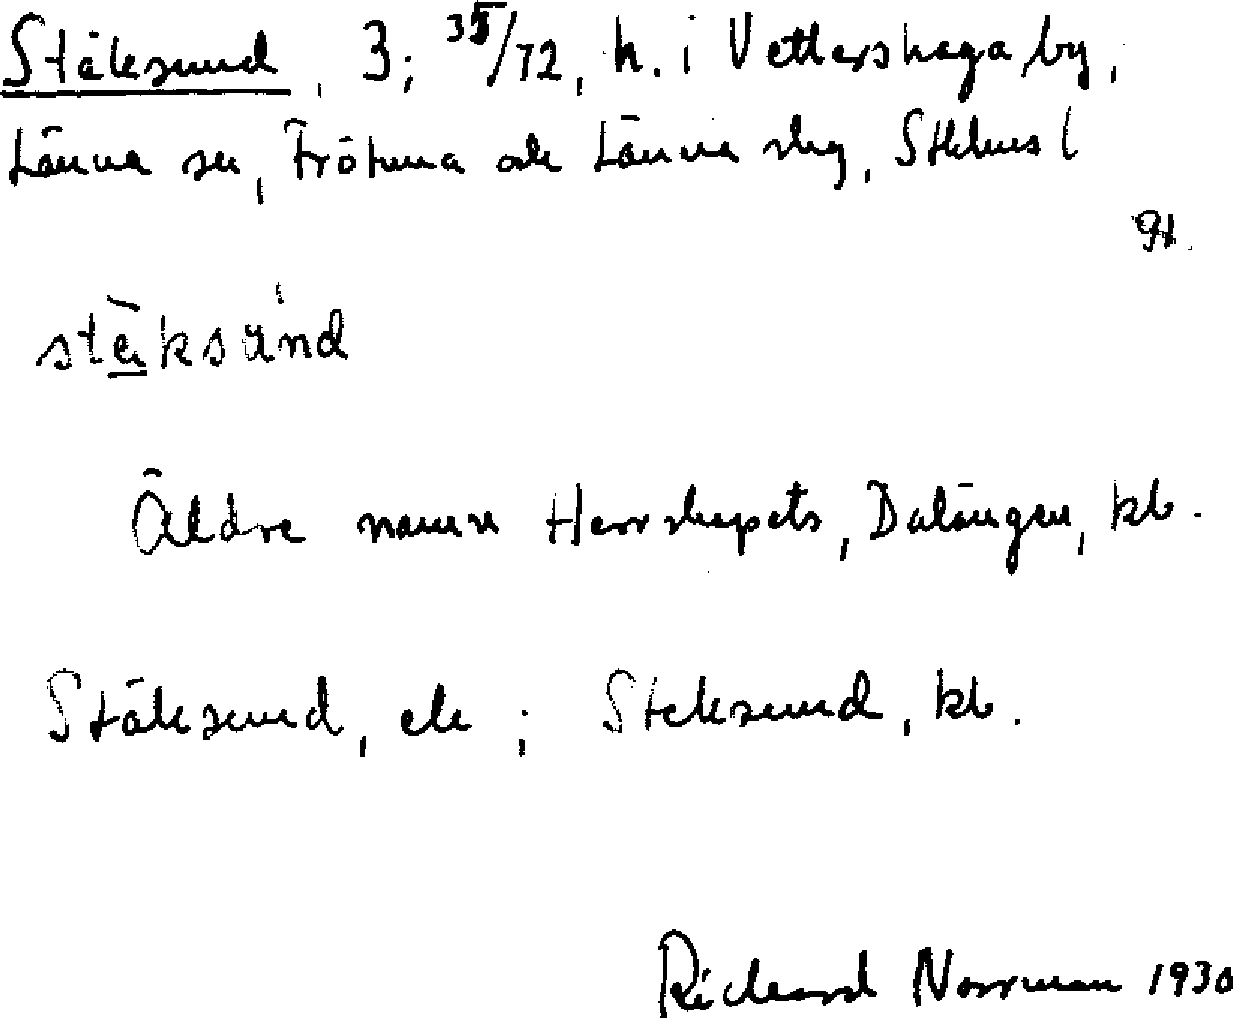 Stäksund, 3; 35/72, h. i Vettershaga by,
Länna sn, Frötuna och Länna skg, Sthlms l
stäksund
Äldre namn Herrskapets, Dalängen, kb.
Stäksund, ek; Steksund, kb.
Richard Norrman 1930